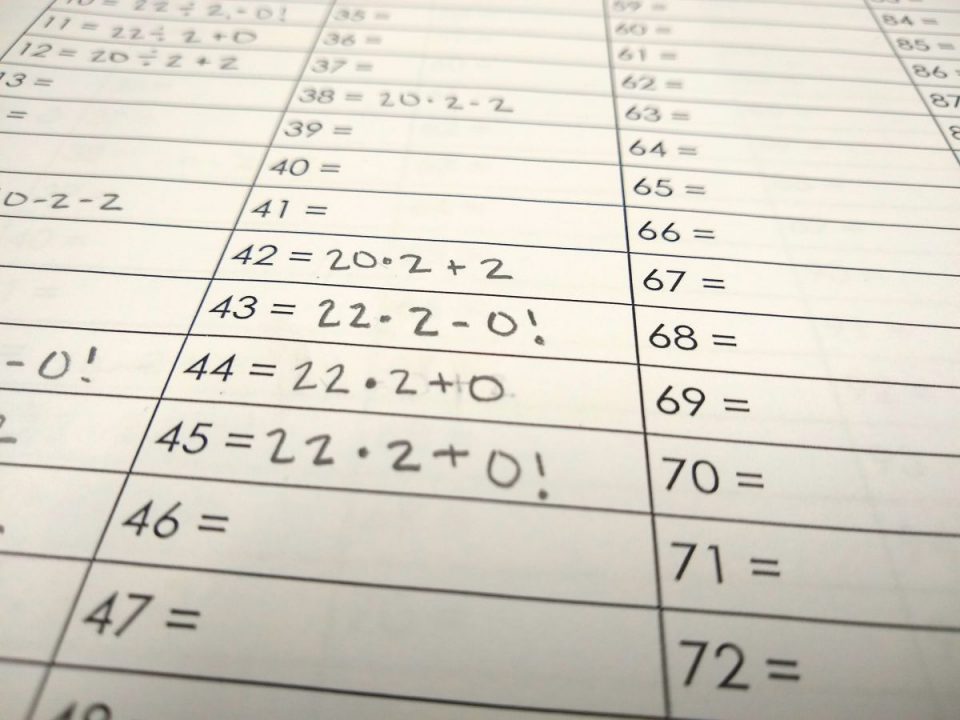 10 = 22 ÷ 2 - 0!
11 = 22 ÷ 2 + 0
12 = 20 ÷ 2 + 2
13 =
=
0-2-2
-0!
35 =
36 =
37 =
38 = 20·2-2
39 =
40 =
41 =
42 = 20·2+2
43 = 22·2-0!
44 = 22·2+0
45 = 22·2+0!
46 =
47 =
48
59 =
60 =
61 =
62 =
63 =
64 =
65 =
66 =
67 =
68 =
69 =
70 =
71 =
72 =
84 =
85 =
86 =
87